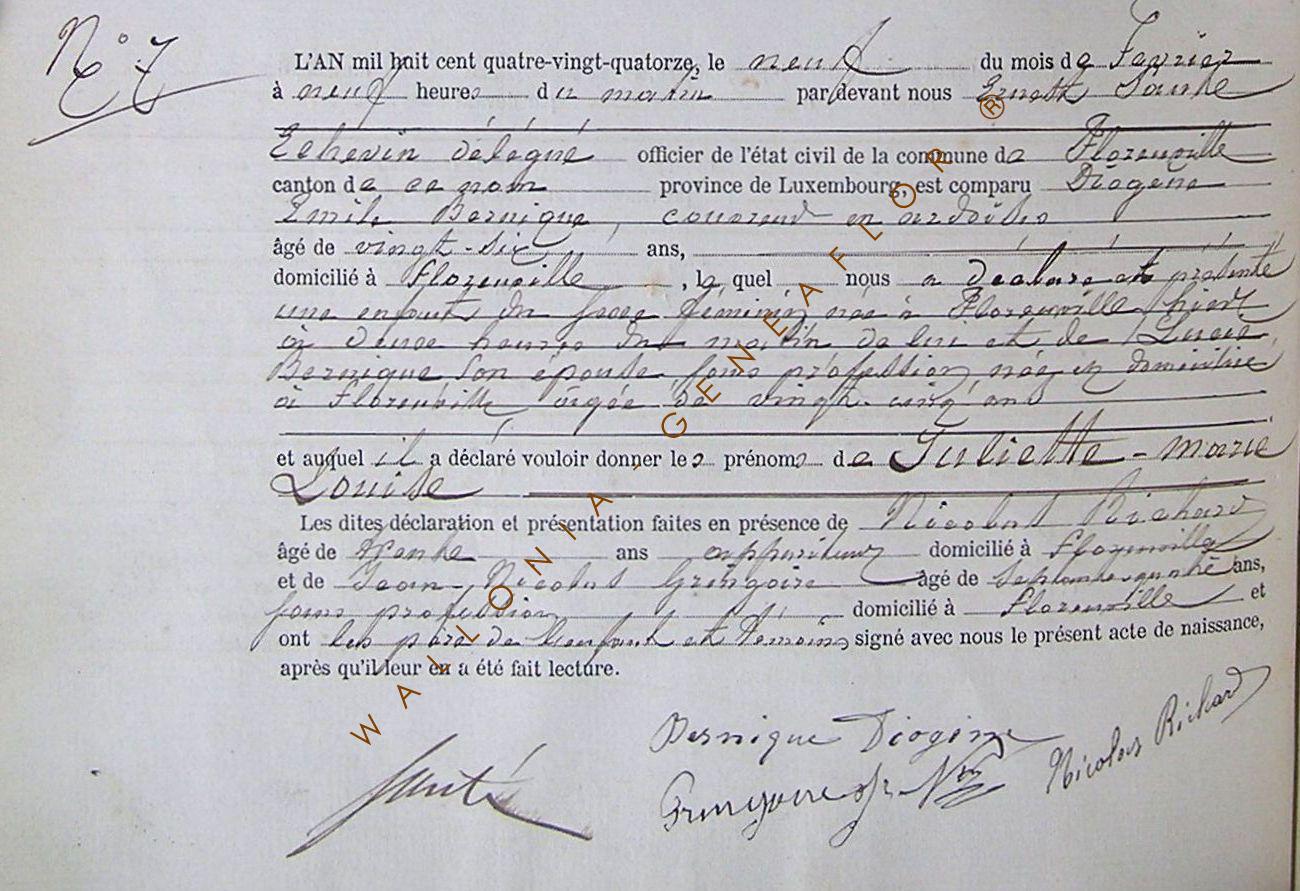 N° 7
L'AN mil huit cent quatre-vingt-quatorze, le neuf du mois de Fevrier
à neuf heures du matin par devant nous Ernest Santé
Echevin délégué officier de l'état civil de la commune de Florenville
canton de ce nom province de Luxembourg, est comparu Diogène
Emile Bernique, couvreur en ardoises
âgé de vingt-six ans,
domicilié à Florenville, le quel nous a déclaré et présenté
une enfant du sexe féminin née à Florenville hier
à deux heures du matin de lui et de Lucie
Bernique son épouse sans profession née et domiciliée
à Florenville âgée de vingt-cinq ans
et auquel il a déclaré vouloir donner les prénoms de Juliette-Marie
Louise
Les dites déclaration et présentation faites en présence de Nicolas Richard
âgé de trente ans appariteur domicilié à Florenville
et de Jean-Nicolas Gringoire âgé de septante-quatre ans,
sans profession domicilié à Florenville et
ont les père de l'enfant et témoins signé avec nous le présent acte de naissance,
après qu'il leur en a été fait lecture.
Bernique Diogène
Nicolas Richard
Santé
Gringoire J. Nas
WALLONIA - GENEAFLOR ®